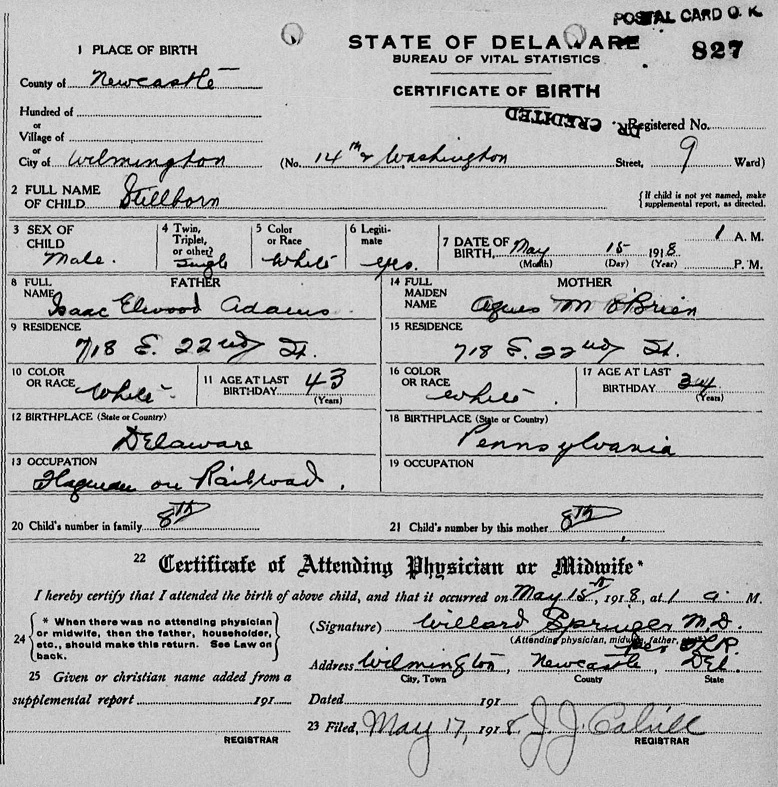 POSTAL CARD O. K.
STATE OF DELAWARE
827
BUREAU OF VITAL STATISTICS
1 PLACE OF BIRTH
County of Newcastle
CERTIFICATE OF BIRTH
Hundred of
DR. CREDITED
or
Village of
Registered No.
or
City of Wilmington (No. 14th & Washington Street, 9 Ward)
2 FULL NAME OF CHILD Stillborn
{If child is not yet named, make supplemental report, as directed.
3 SEX OF CHILD Male.
4 Twin, Triplet, or other? Single
5 Color or Race White
6 Legitimate yes.
7 DATE OF BIRTH, May 15 1918 1 A. M.
(Month) (Day) (Year) P. M.
FATHER
8 FULL NAME Isaac Elwood Adams.
MOTHER
14 FULL MAIDEN NAME Agnes M O'Brien
9 RESIDENCE
718 E. 22nd St.
15 RESIDENCE
718 E. 22nd St.
10 COLOR OR RACE White.
11 AGE AT LAST BIRTHDAY 43
(Years)
16 COLOR OR RACE White.
17 AGE AT LAST BIRTHDAY 34
(Years)
12 BIRTHPLACE (State or Country)
Delaware
18 BIRTHPLACE (State or Country)
Pennsylvania
13 OCCUPATION
Flagman on Railroad.
19 OCCUPATION
20 Child's number in family 8th
21 Child's number by this mother 8th
22 Certificate of Attending Physician or Midwife*
I hereby certify that I attended the birth of above child, and that it occurred on May 15th, 1918, at 1 a M.
24 {* When there was no attending physician or midwife, then the father, householder, etc., should make this return. See Law on back.
(Signature) Willard Springer M.D.
(Attending physician, midwife, father,
per
Address Wilmington, Newcastle, Del.
City, Town County State
25 Given or christian name added from a
supplemental report 191
Dated 191
23 Filed, May 17, 1918. J. J. Cahill
REGISTRAR
REGISTRAR